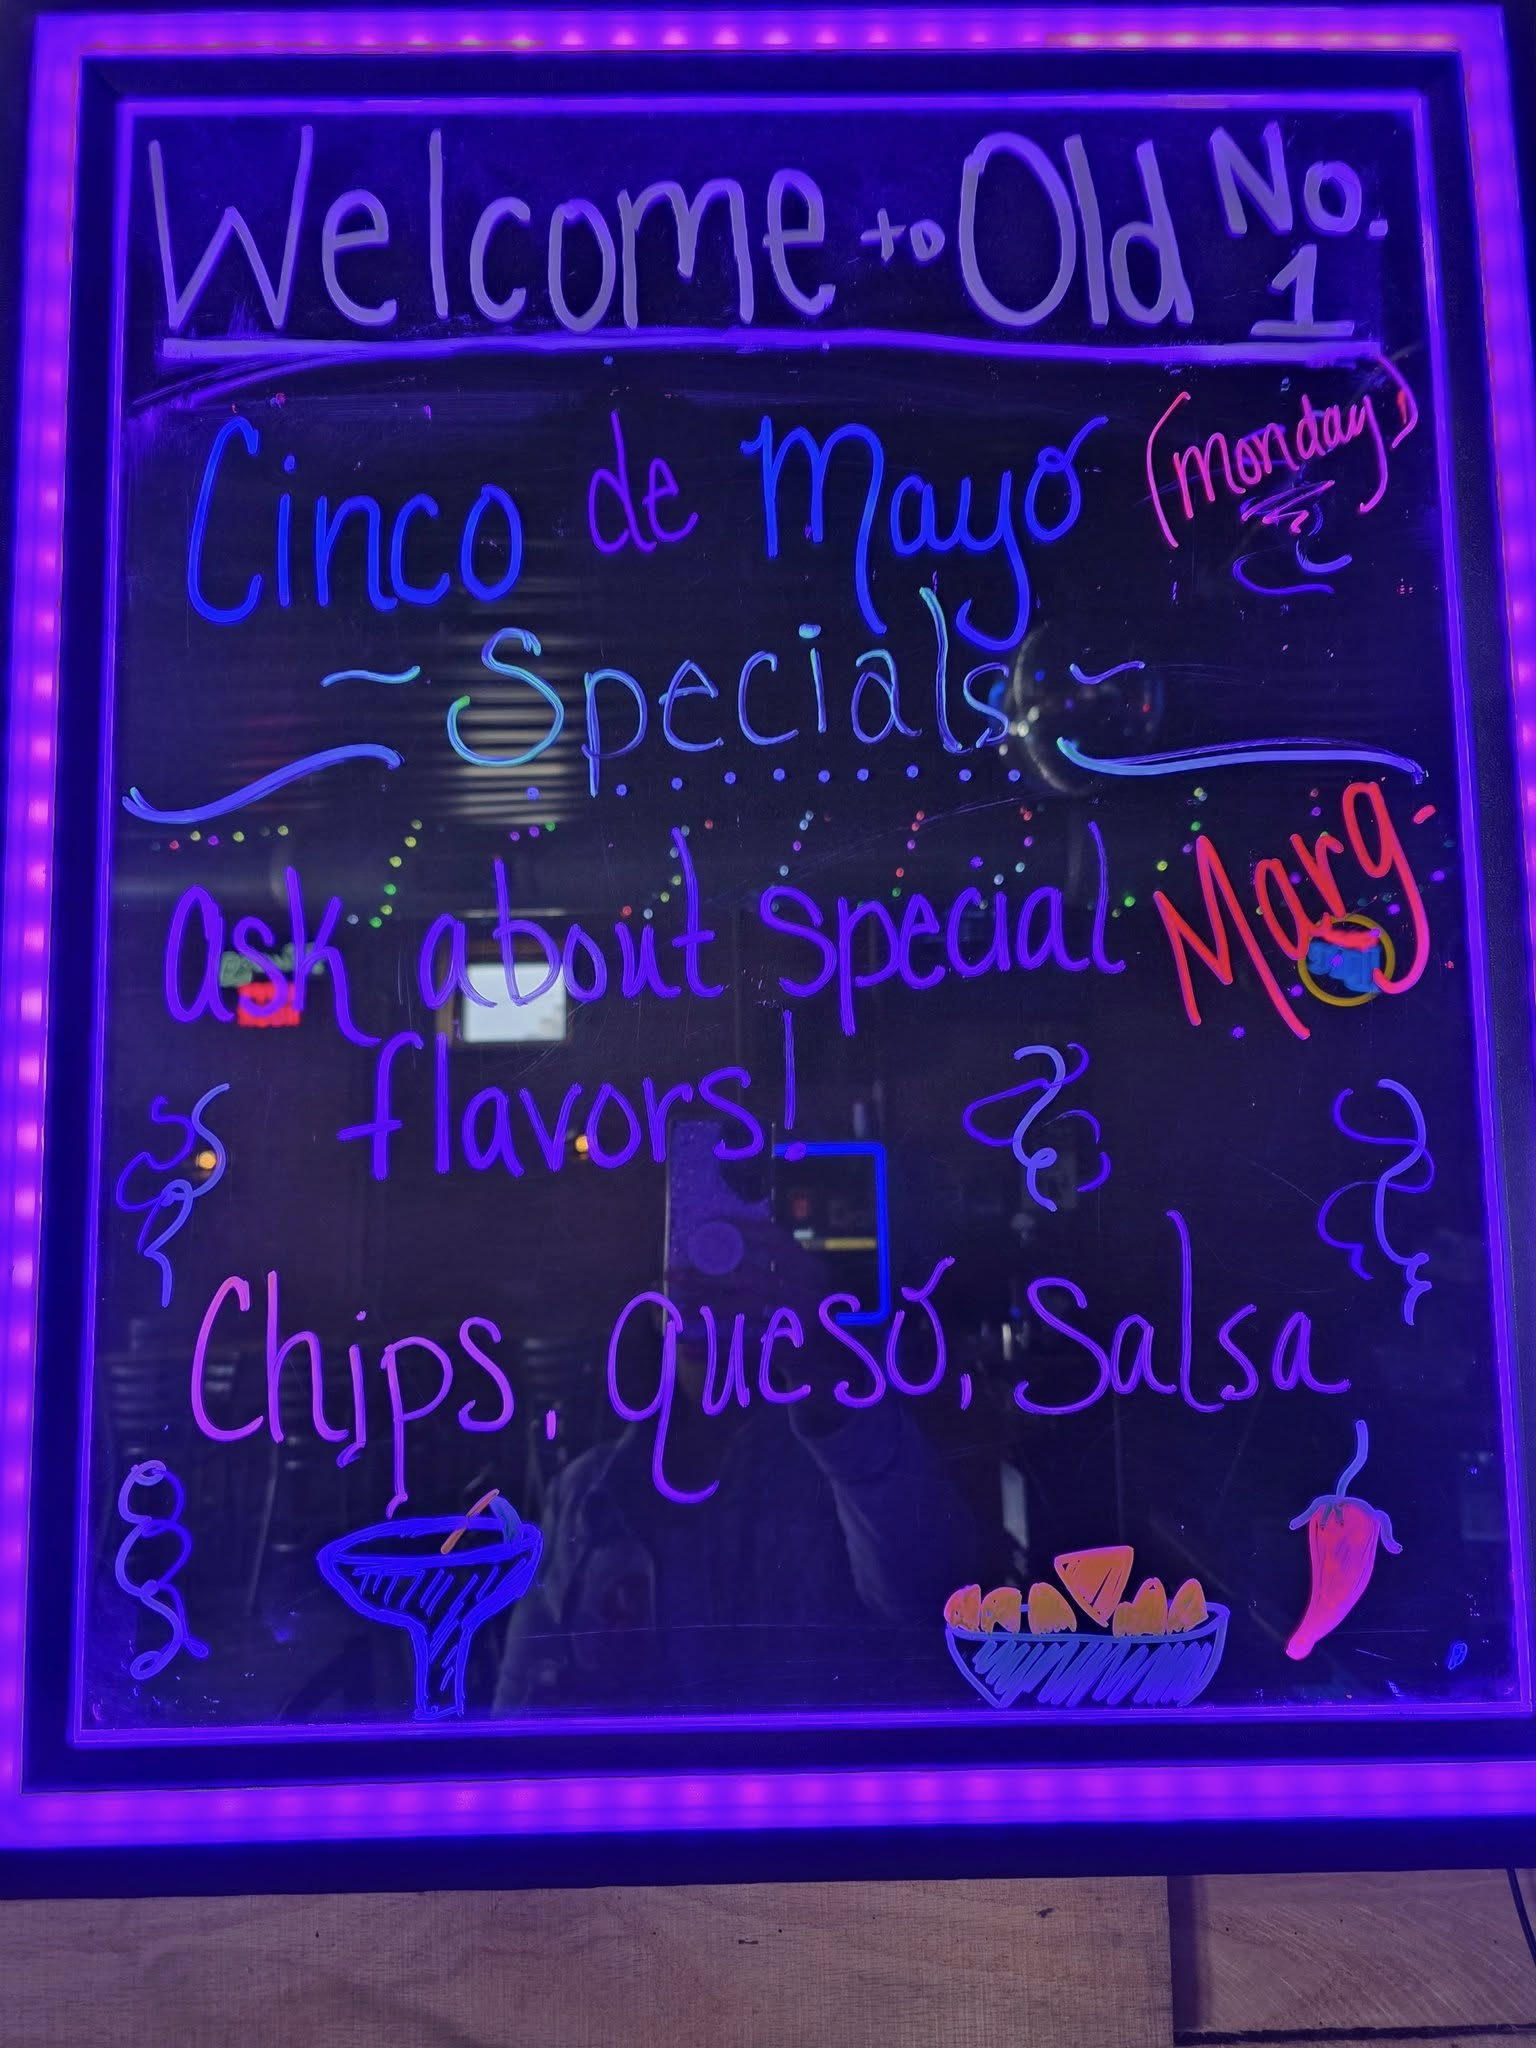 Welcome to Old No. 1
Cinco de Mayo (Monday)
~ Specials ~
ask about special Marg
flavors!
Chips, queso, Salsa